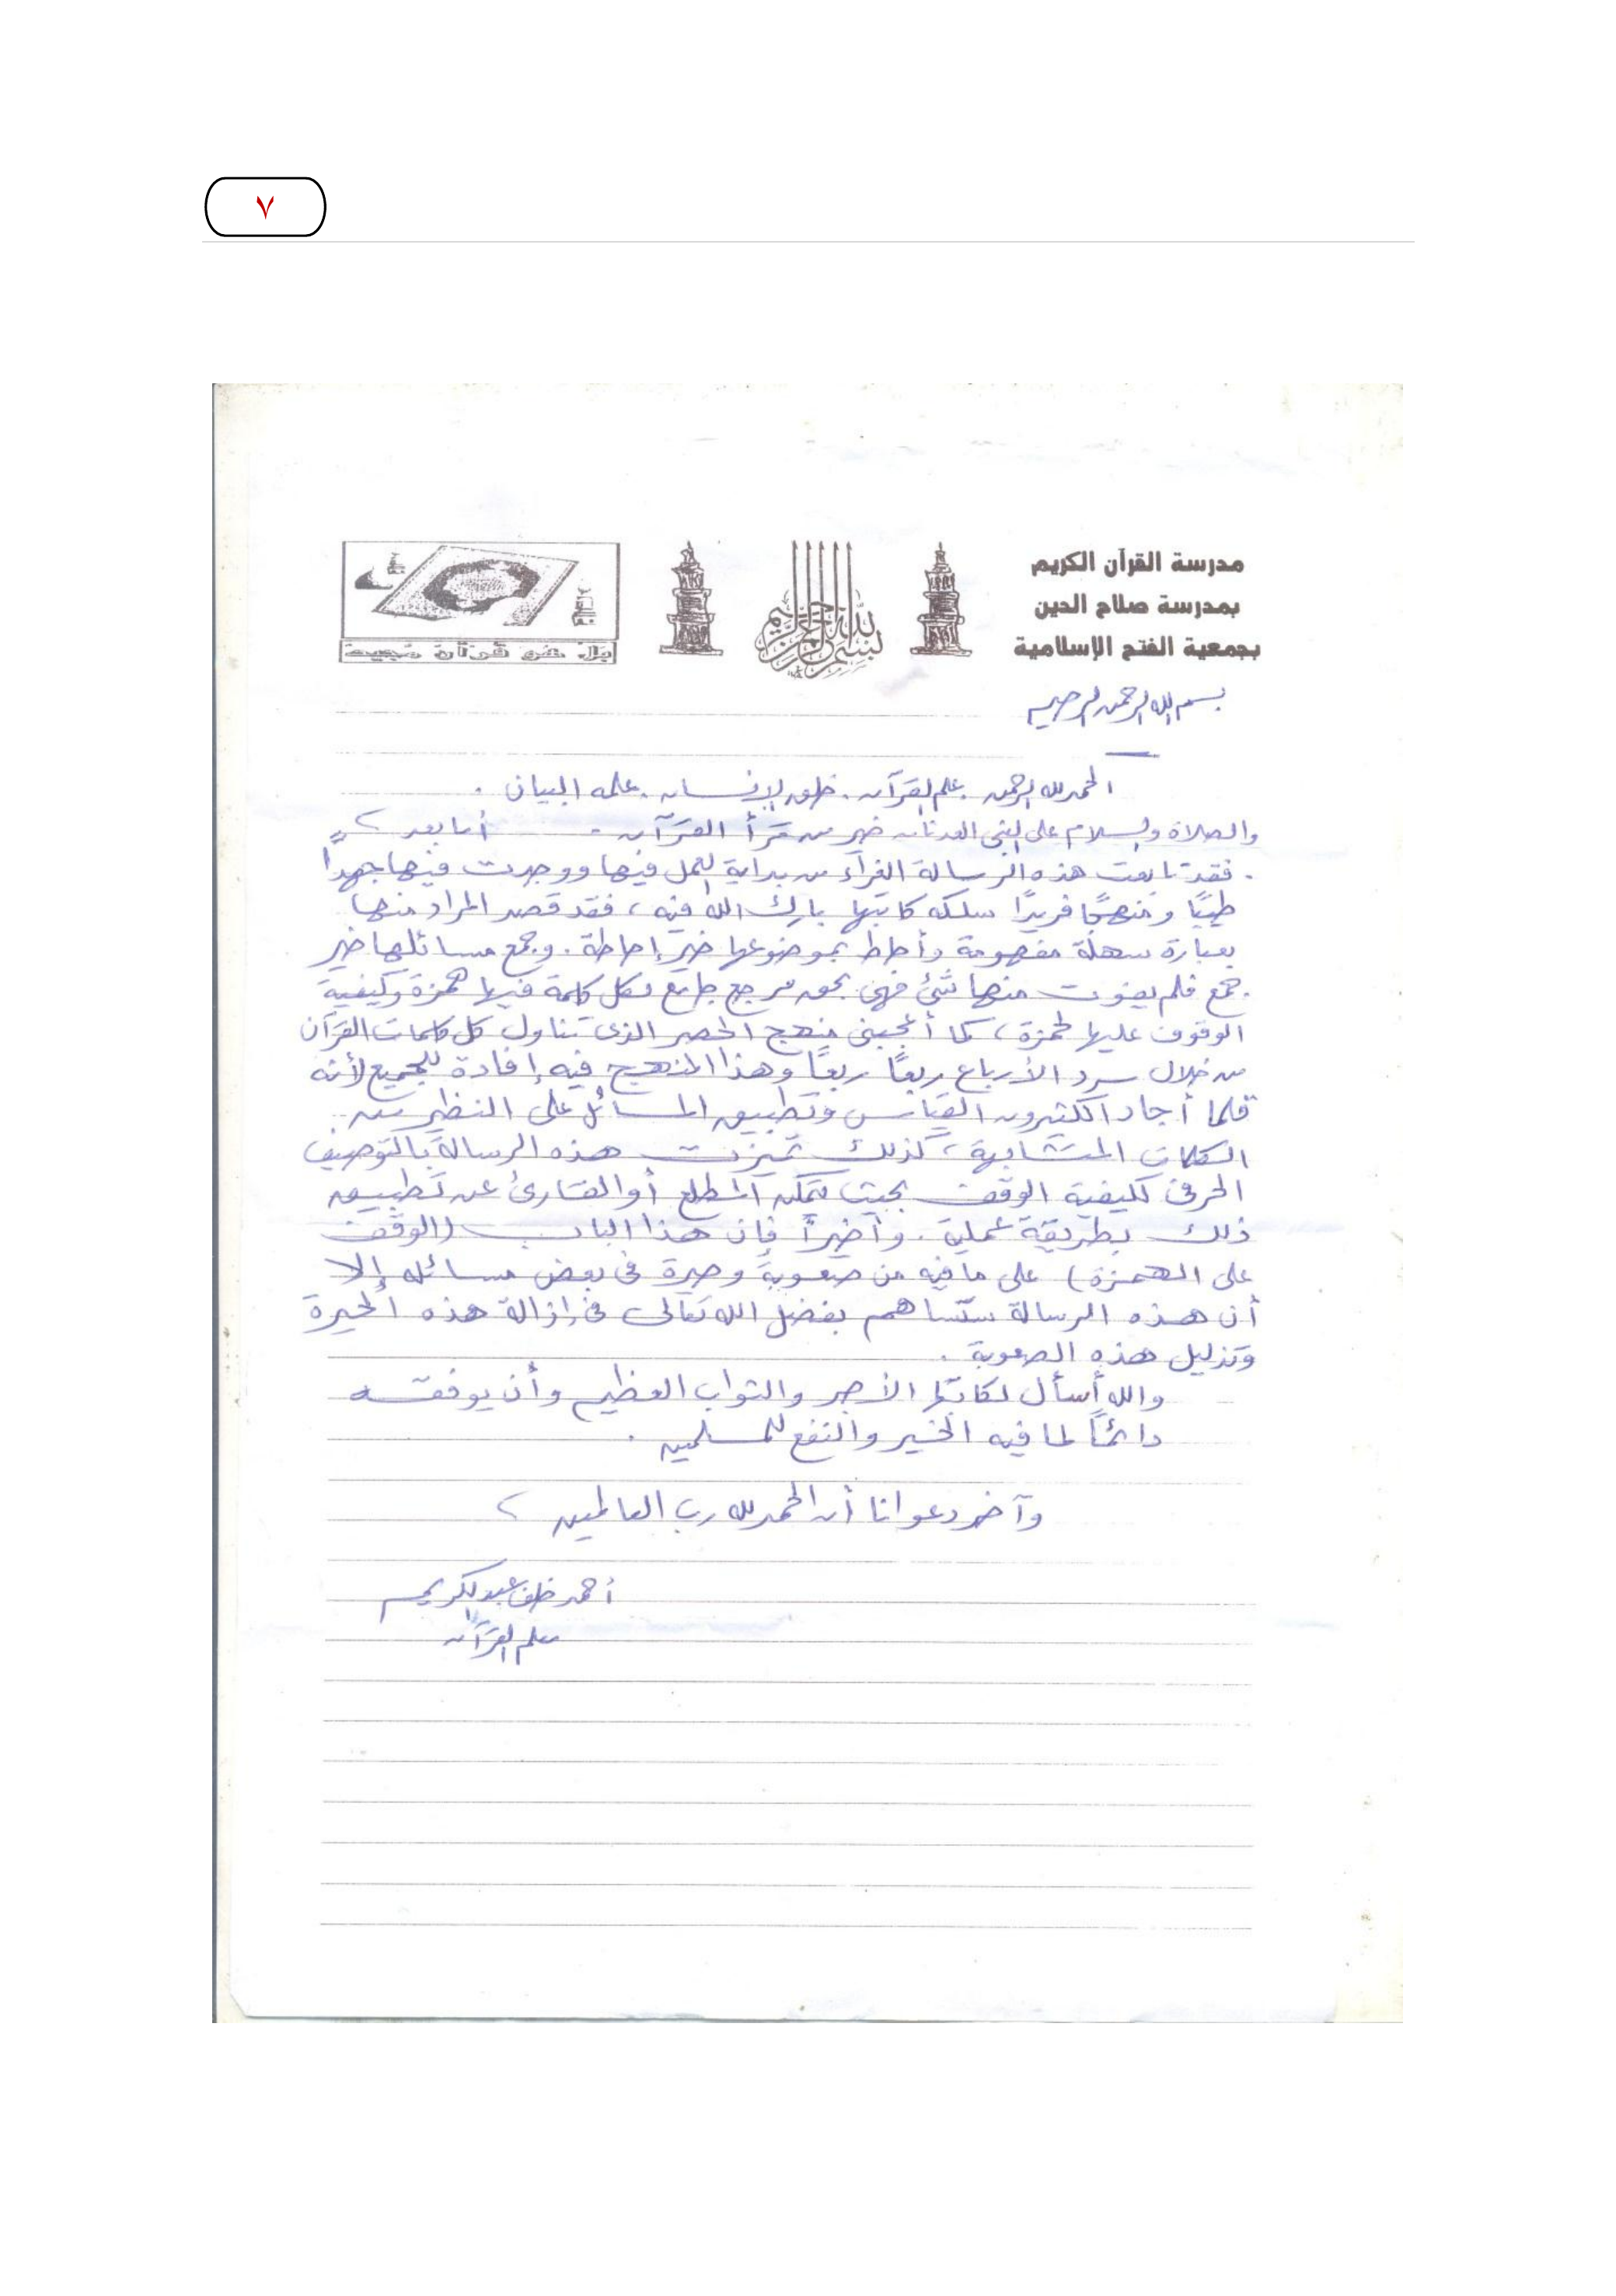 ٧
مدرسة القرآن الكريم
بمدرسة صلاح الدين
بجمعية الفتح الإسلامية
بسم الله الرحمن الرحيم
بل هو قرآن مجيد
بسم الله الرحمن الرحيم
الحمد لله الرحمن . علم القرآن . خلق الإنسان . علمه البيان .
والصلاة والسلام على النبى العدنان خير من قرأ القرآن . أما بعد
. فقد تابعت هذه الرسالة الغراء من بداية العمل فيها ووجدت فيها جهدًا
طيبًا ومنهجًا فريدًا سلكه كاتبها بارك الله فيه ، فقد قصد المراد منها
بعبارة سهلة مفهومة وأحاط بموضوعها خير إحاطة . وجمع مسائلها خير
جمع فلم يفوت منها شئ فهى بحق مرجع جامع لكل كلمة فيها همزة وكيفية
الوقوف عليها لحمزة ، كما أعجبنى منهج الحصر الذى تناول كل كلمات القرآن
من خلال سرد الأرباع ربعًا ربعًا وهذا المنهج فيه إفادة للجميع لأنه
قلما أجاد الكثيرون القياس وتطبيق المسائل على النظير من
الكلمات المتشابهة ، كذلك تميزت هذه الرسالة بالتوصيف
الحرفى لكيفية الوقف بحيث يتمكن المطلع أو القارئ عن تطبيق
ذلك بطريقة عملية . وأخيرًا فإن هذا الباب (الوقف
على الهمزة) على ما فيه من صعوبة وحيرة فى بعض مسائله إلا
أن هذه الرسالة ستساهم بفضل الله تعالى فى إزالة هذه الحيرة
وتذليل هذه الصعوبة .
والله أسأل لكاتبها الأجر والثواب العظيم وأن يوفقه
دائمًا لما فيه الخير والنفع للمسلمين .
وآخر دعوانا أن الحمد لله رب العالمين
أحمد خلف عبد الكريم
معلم القرآن